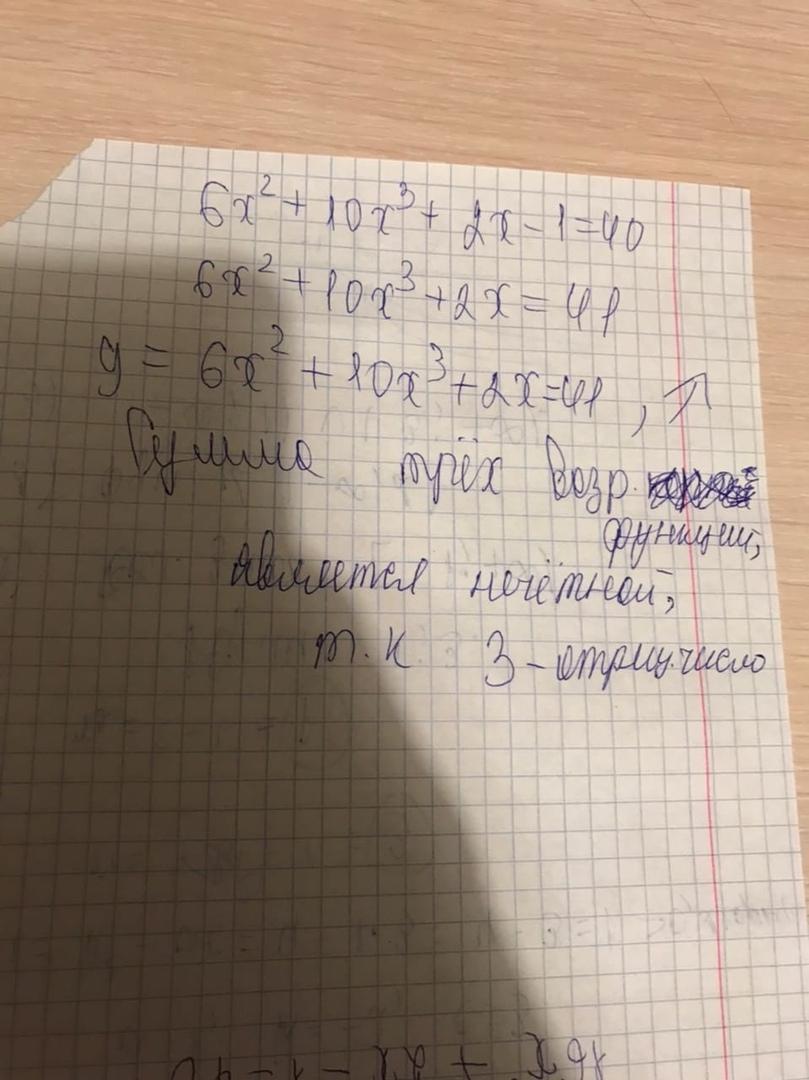 6x² + 10x³ + 2x - 1 = 40
6x² + 10x³ + 2x = 41
y = 6x² + 10x³ + 2x = 41, ↗
Сумма трёх возр.
функций,
является нечётной,
т.к 3 - отриц. число
+ 2x - 1 = 40